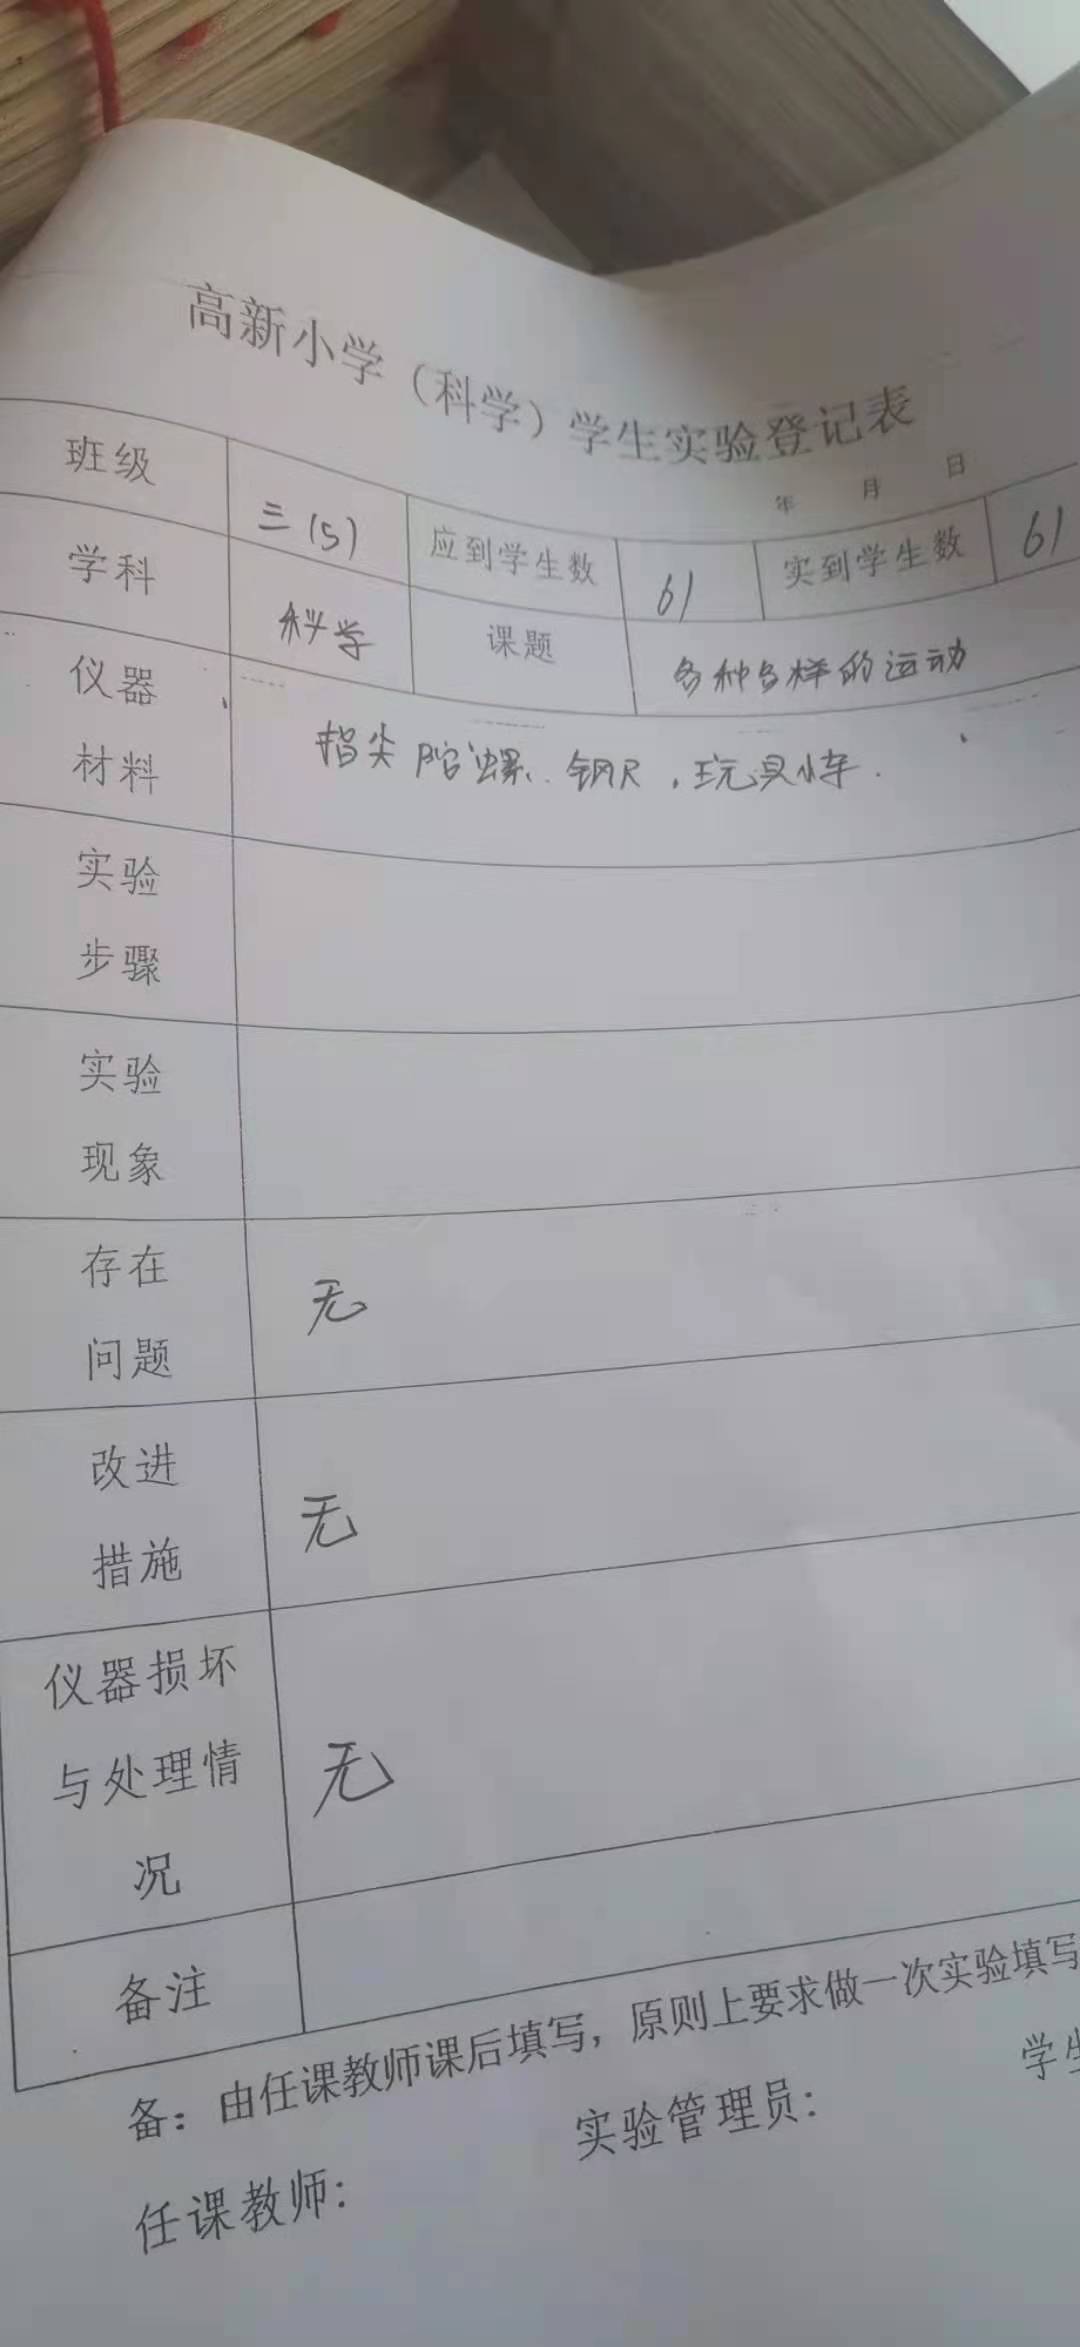 高新小学（科学）学生实验登记表
年 月 日
班级 三(5) 应到学生数 61 实到学生数 61
学科 科学 课题 各种各样的运动
仪器
材料
指尖陀螺、钢尺，玩具小车.
实验
步骤
实验
现象
存在
问题
无
改进
措施
无
仪器损坏
与处理情
况
无
备注
备：由任课教师课后填写，原则上要求做一次实验填写
任课教师： 实验管理员： 学生